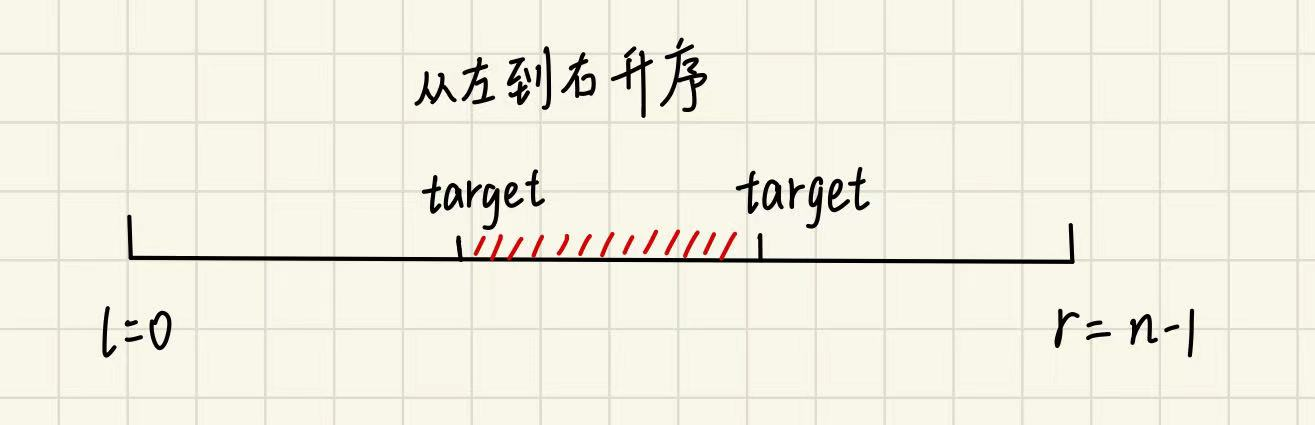 从左到右升序
target target
l=0 r=n-1